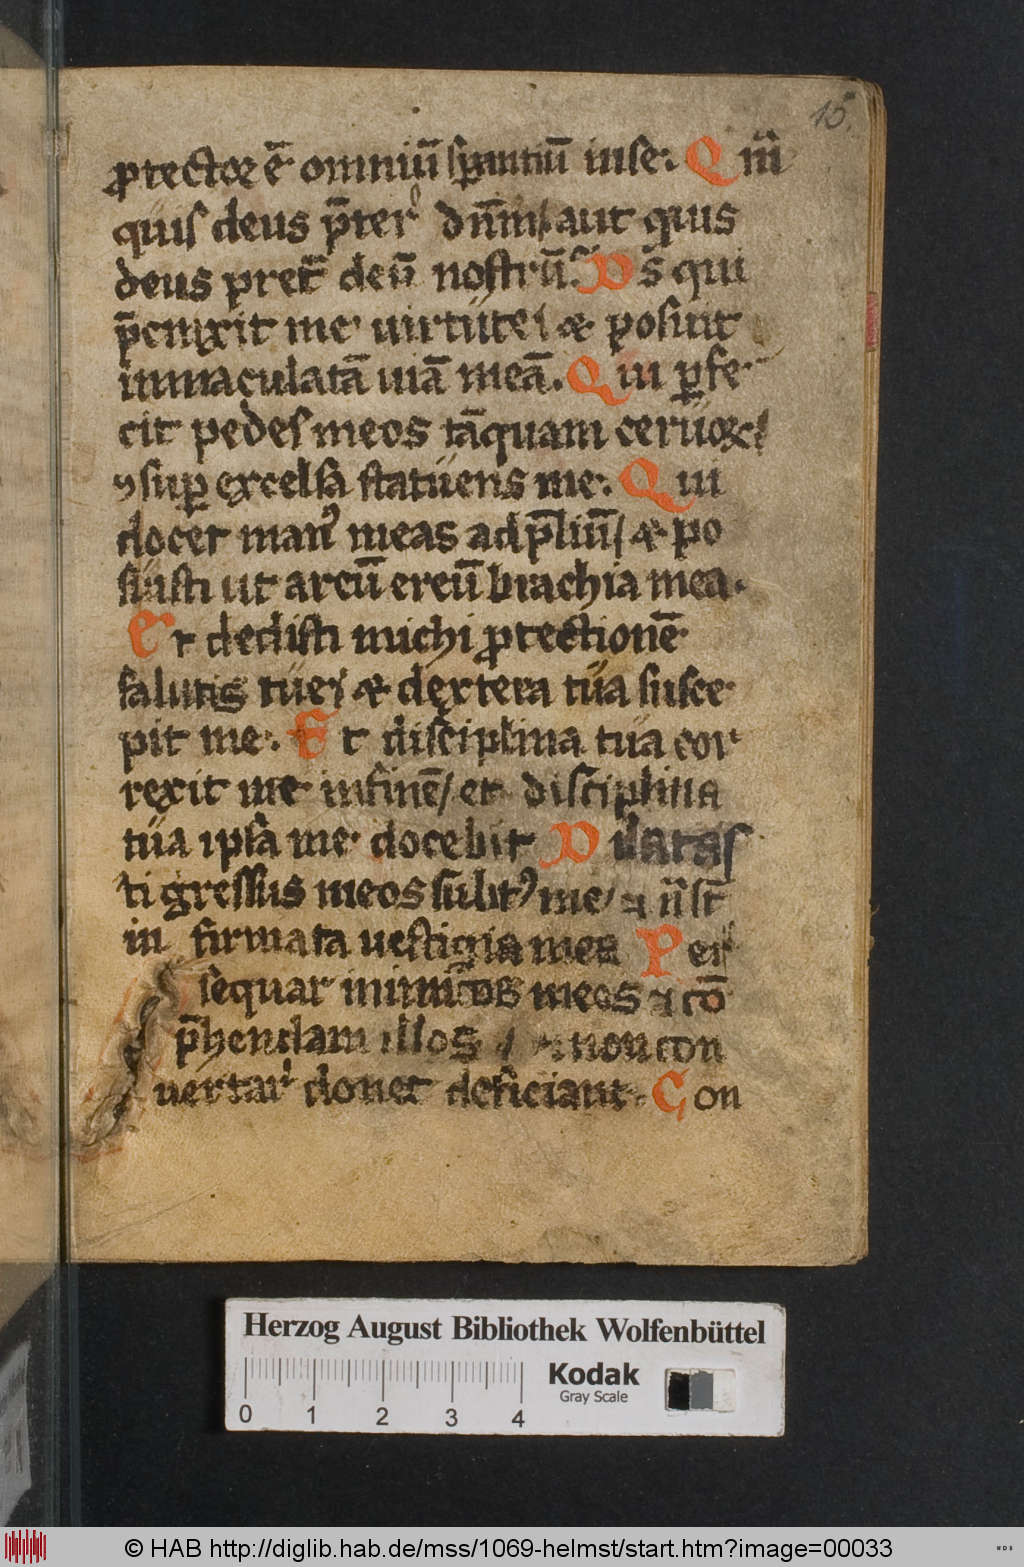 15.
ꝓtector ē omniū sꝑantiū inse. Qm̄
quis deus p̄ter dn̄m / aut quis
deus pret̄ deū nostrū. Ds̄ qui
p̄cinxit me uirtute / & posuit
inmaculatā uiā meā. Qui ꝑfe
cit pedes meos tāquam ceruoꝝ /
⁊ suꝑ excelsa statuens me. Qui
docet manꝰ meas ad p̄liū / & po
suisti ut arcū ereū brachia mea.
Et dedisti michi ꝓtectionē
salutis tue / & dextera tua susce
pit me. Et disciplina tua cor
rexit me infinē / et disciplina
tua ipsa me docebit Dilatas
ti gressus meos subtꝰ me / ⁊ n̄ st̄
in firmata uestigia mea Per
sequar inimicos meos ⁊ cō
p̄hendam illos / ⁊ non con
uertar donec deficiant. Con
Herzog August Bibliothek Wolfenbüttel
Kodak
Gray Scale
0 1 2 3 4
© HAB http://diglib.hab.de/mss/1069-helmst/start.htm?image=00033